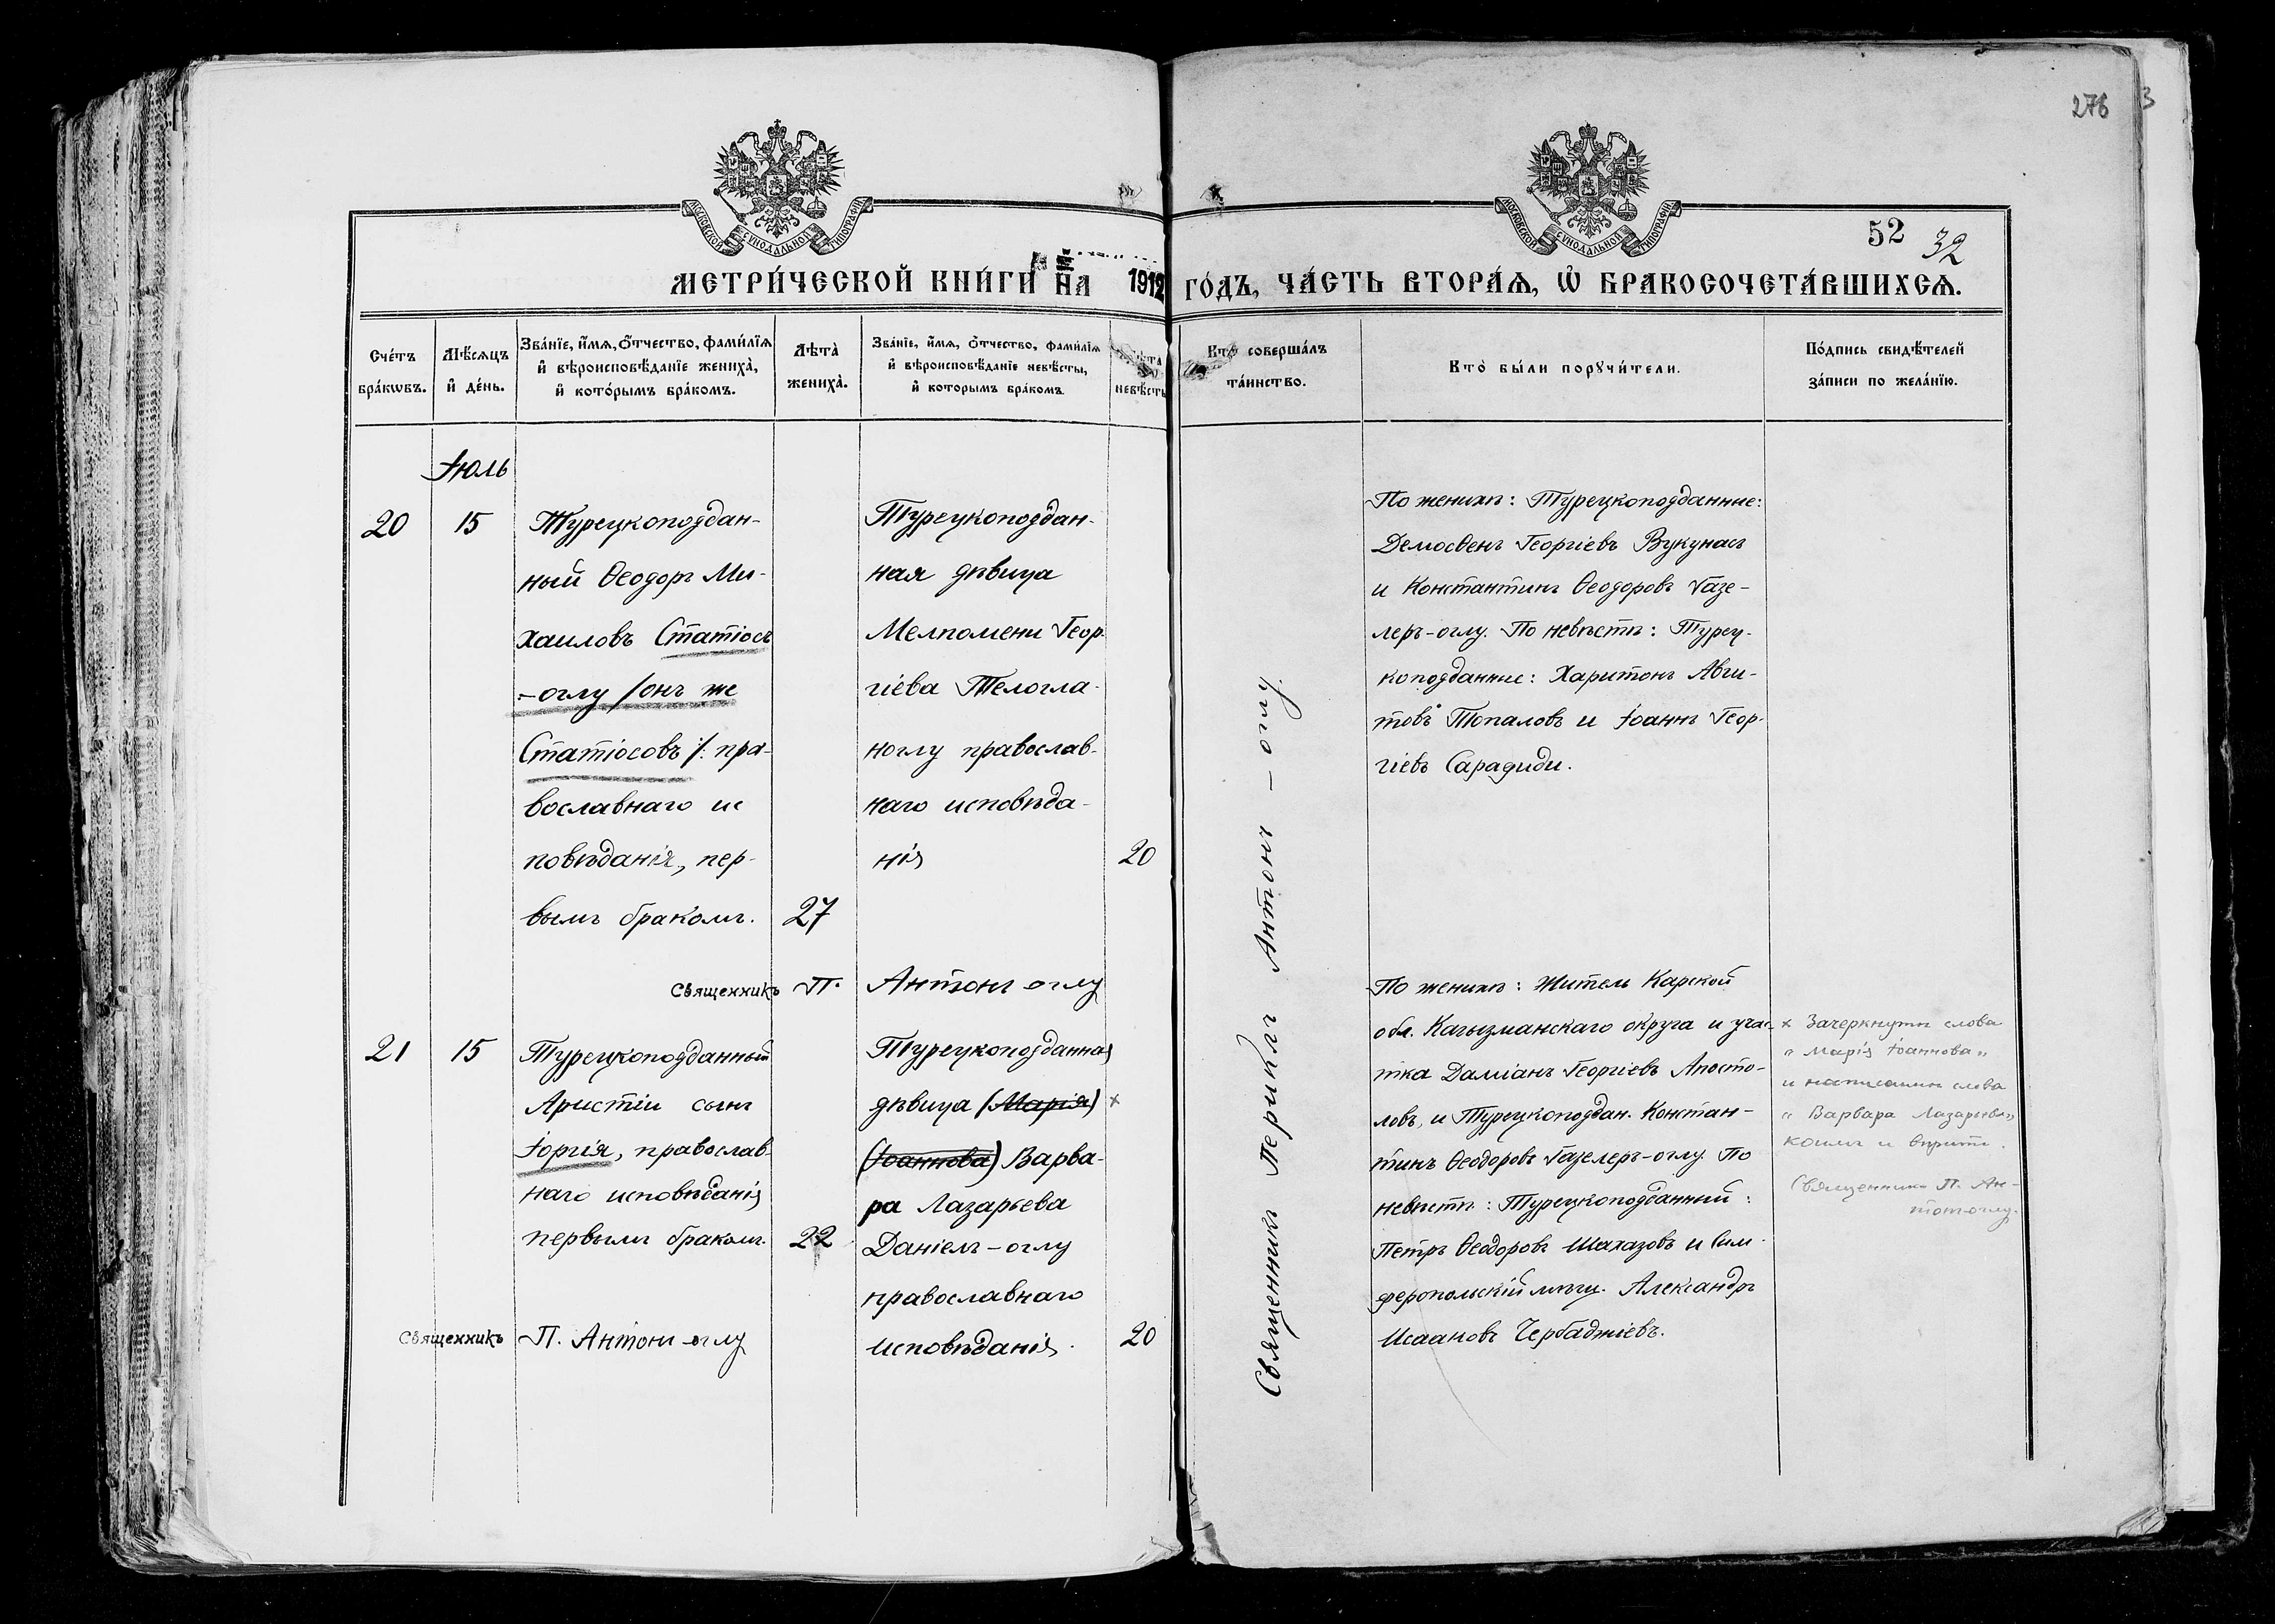 276
3
МОСКОВСКОЙ СУНОДАЛЬНОЙ ТИПОГРАФІИ
МОСКОВСКОЙ СУНОДАЛЬНОЙ ТИПОГРАФІИ
52 32
МЕТРИ́ЧЕСКОЙ КНИ́ГИ НА 1912 ГО́ДЪ, ЧА́СТЬ ВТОРА́Ѧ, Ѡ҆ БРАКОСОЧЕТА́ВШИХСѦ.
Сче́тъ бра́кωвъ.
Мѣ́сѧцъ и҆ де́нь.
Зва́нїе, и҆́мѧ, ѻ҆́тчество, фами́лїѧ и҆ вѣроисповѣ́данїе жениха̀, и҆ кото́рымъ бра́комъ.
Лѣ́та жениха̀.
Зва́нїе, и҆́мѧ, ѻ҆́тчество, фами́лїѧ и҆ вѣроисповѣ́данїе невѣ́сты, и҆ которымъ бра́комъ.
невѣ́сты
Кто̀ соверша́лъ та́инство.
Кто̀ бы́ли порꙋчи́тели.
По́дпись свидѣ́телей за́писи по жела́нїю.
Іюль
20
15
Турецкоподдан-
ный Ѳеодоръ Ми-
хаиловъ Статіосъ
-оглу /онъ же
Статіосовъ/: пра-
вославнаго ис
повѣданія, пер-
вымъ бракомъ.
27
Турецкоподдан-
ная дѣвица
Мелпомени Геор-
гіева Телогла-
ноглу православ-
наго исповѣда-
нія
20
Священникъ П. Антонъ-оглу
По женихѣ: Турецкоподданные:
Демосѳенъ Георгіевъ Вукунасъ
и Константинъ Ѳеодоровъ Газе-
леръ-оглу. По невѣстѣ: Турец-
коподданные: Харитонъ Авги-
товъ Топаловъ и Іоаннъ Геор-
гіевъ Сарадиди.
21
15
Турецкоподданный
Аристіи сынъ
Іоргія, православ-
наго исповѣданія
первымъ бракомъ.
22
Турецкоподданная
дѣвица (Марія) ×
(Іоаннова) Варва-
ра Лазарьева
Даніелъ-оглу
православнаго
исповѣданія.
20
Священникъ П. Антонъ-оглу
Священникъ Периклъ Антонъ-оглу.
По женихѣ: Житель Карской
обл. Кагызманскаго округа и учас-
тка Даміанъ Георгіевъ Апосто-
ловъ, и Турецкоподдан. Констан-
тинъ Ѳеодоровъ Газелеръ-оглу. По
невѣстѣ: Турецкоподданный:
Петръ Ѳеодоровъ Шахазовъ и Сим-
феропольскій мѣщ. Александръ
Исааковъ Чербаджіевъ.
× Зачеркнуты слова
"Марія Іоаннова"
и написанны слова
"Варвара Лазарьева"
коимъ и вѣрить.
Священникъ П. Ан-
тонъ-оглу.